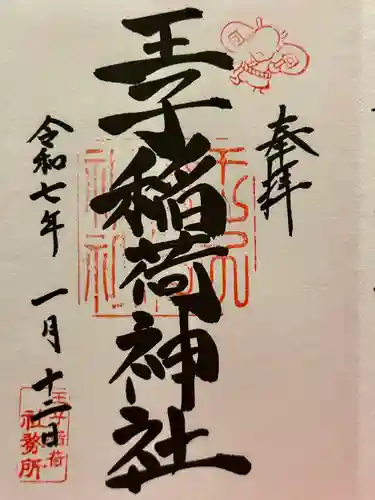 奉拝
王子稲荷神社
令和七年 一月 十二日
王子稲荷
社務所